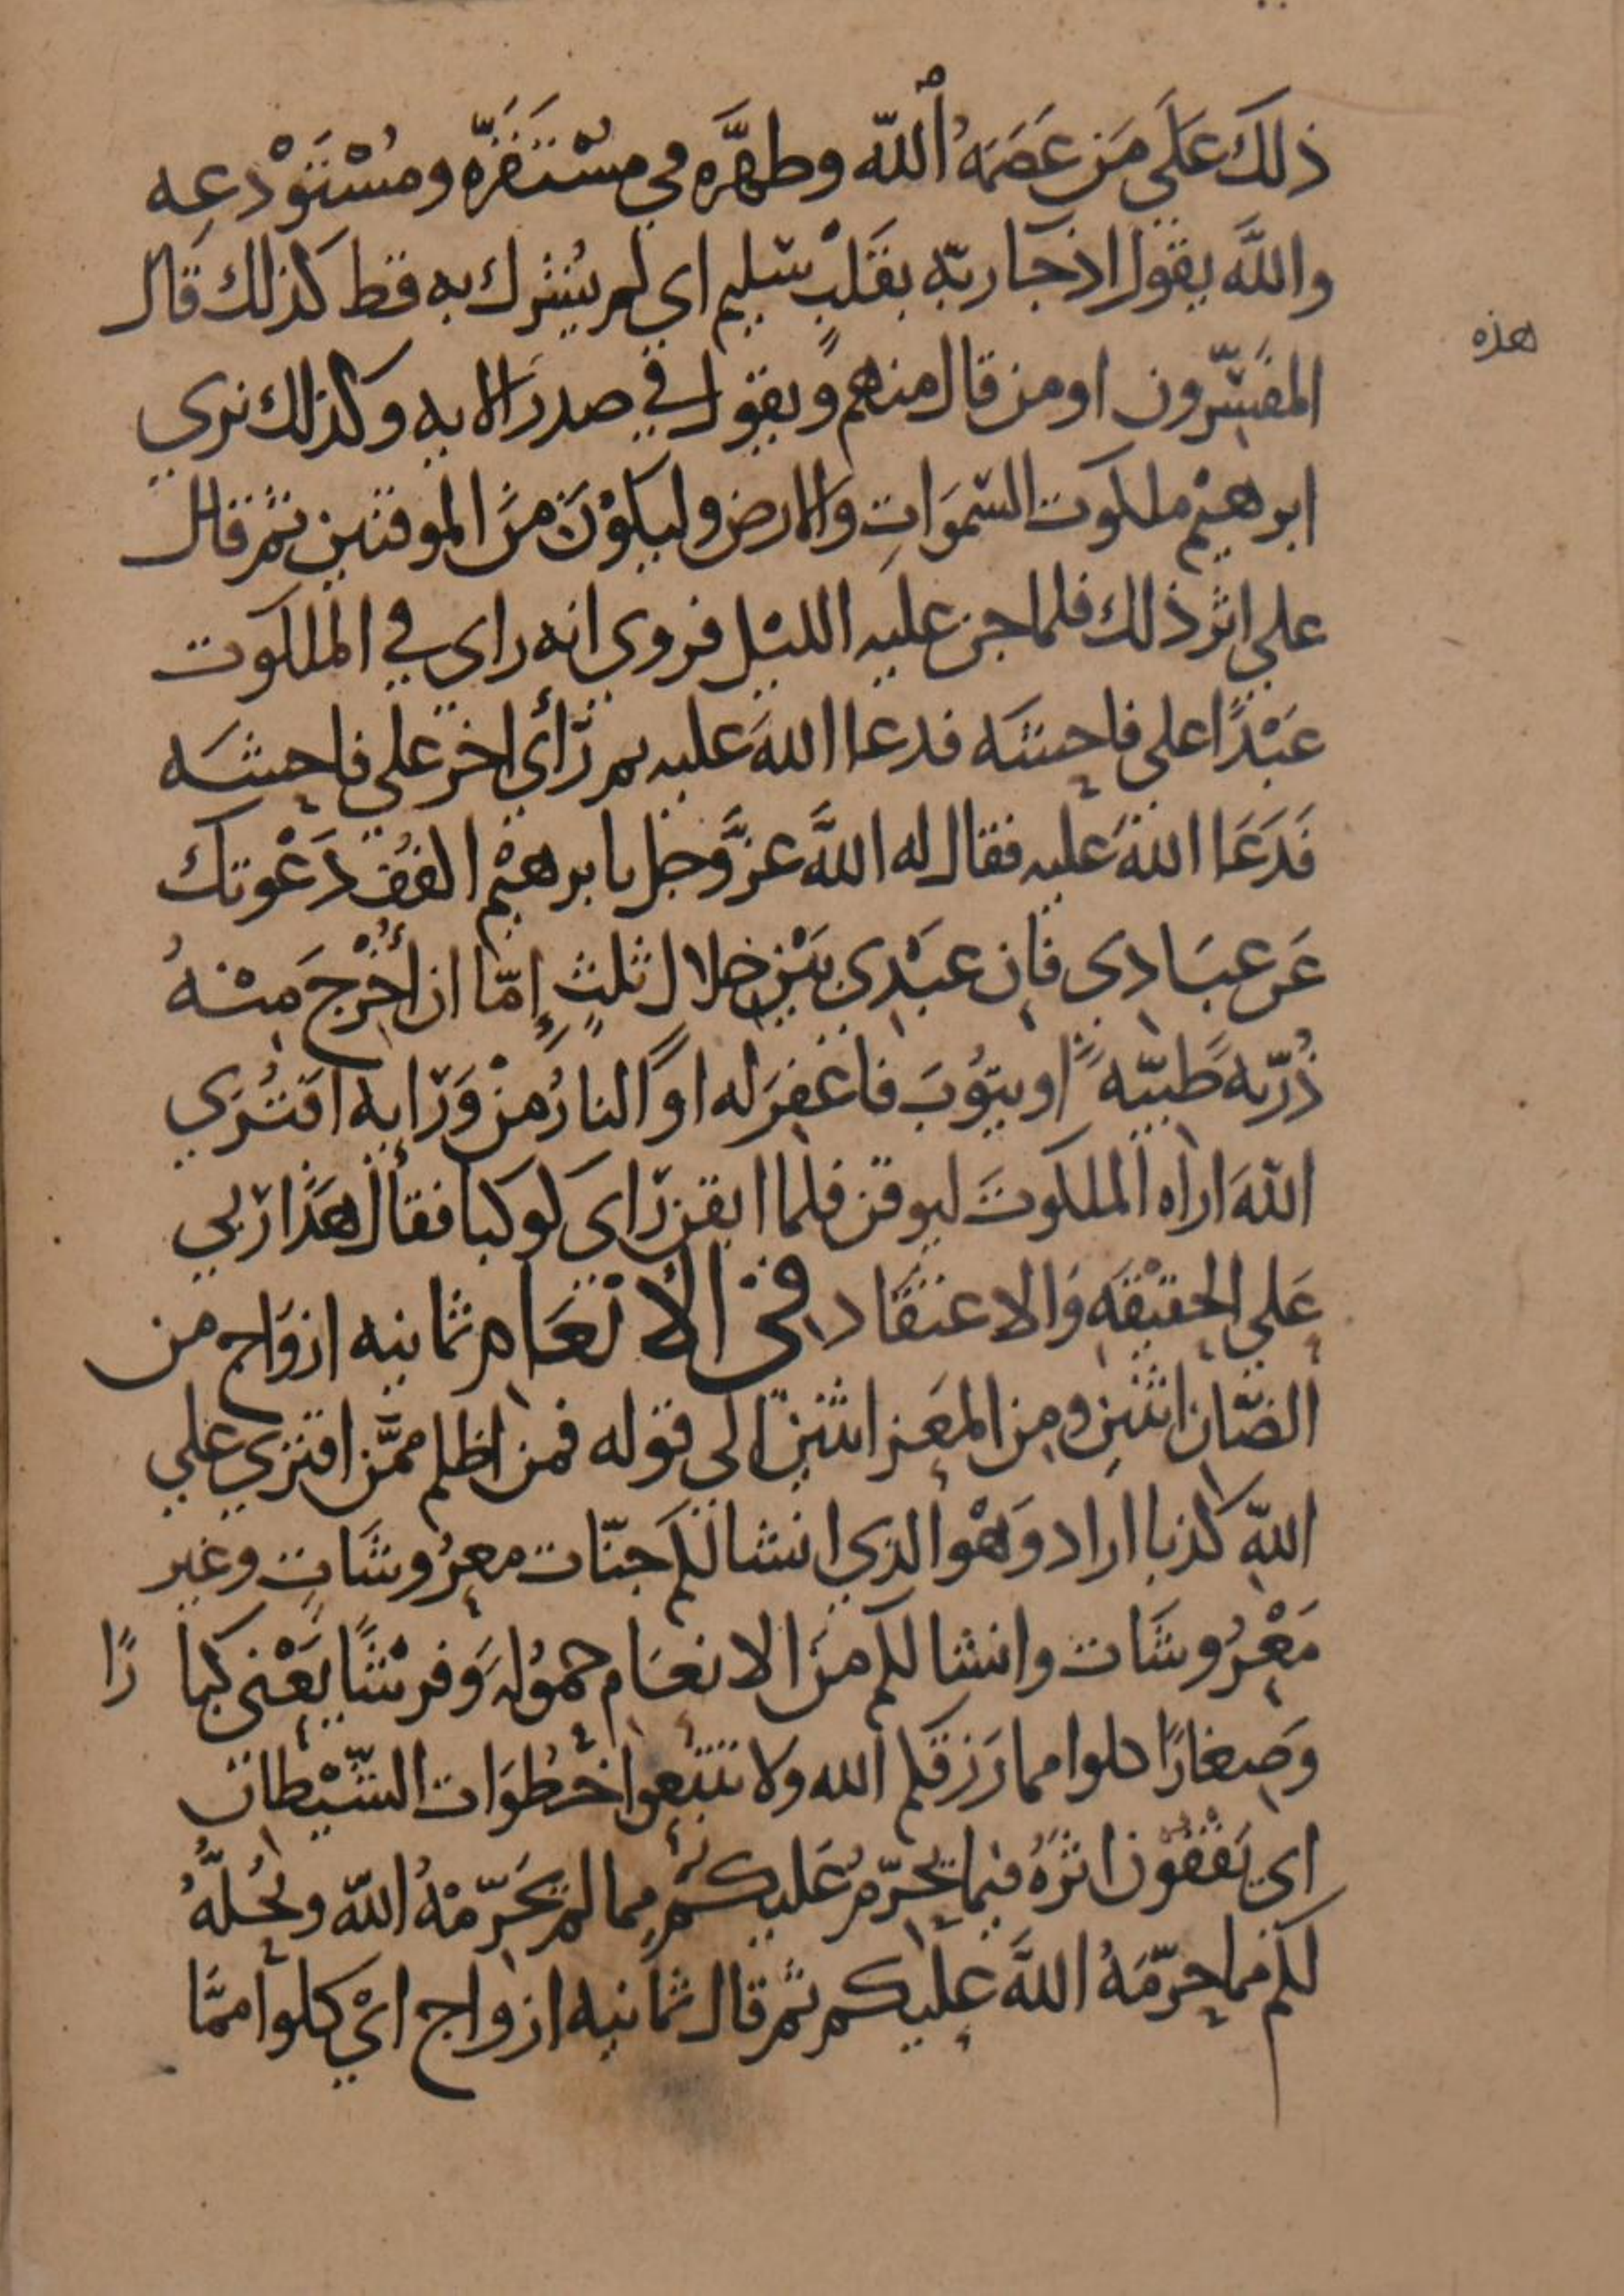 ذلك عَلَى مَن عَصَمَهُ اللّه وطهَّره في مُسْتَقَرِّه ومُسْتَوْدعِه
واللَّه يقول اذ جَا ربّه بقَلْبٍ سَليم اي لم يُشرك به قط كذلك قَال
المفسّرون او من قال منهم ويقول في صدر الايه وكذلك نري
ابرهيْم ملكوت السّموَاتِ وَالارض وليكوْن مِنَ الموقنين ثم قال
علي اثر ذلك فلما جن عليه الليْل فروي انه راي في الملكوت
عَبْدًا علي فاحشَه فدعا اللهَ عليه ثم رَأي اخر علي فاحشَه
فَدَعَا اللهَ عَليه فقال له اللَّه عزَّ وَّجل يابرهيْم اكفُف دَعْوتك
عَن عبَادي فَاِن عبْدي بَيْن خلال ثلثٍ إمّا ان أُخْرِجَ مِنْهُ
ذُرّيةً طَيّبةً او يتوُبَ فاغفِرَ له او النارُ مِنْ وَرَايه افتُرَي
اللهَ اراه الملكوتَ ليوقن فلما ايقن رَاي كوكبا فقال هَذَا رَبي
عَلي الحقيْقَه وَالاعتقَاد في الأنْعَام ثمانيه ازوَاج من
الضّان اثنين ومِن المعَز اثنين الي قوله فمن اظلم ممَّن افترَي علي
اللّهِ كذبا اراد وَهْوَ الذي انشا لكم جنّات معرُوشَاتٍ وغير
مَعْرُوشَات وانشا لكم مِنَ الانعَام حموُلَه وَفرْشًا يَعْني كبا رًا
وَصِغَارًا كلوا مما رَزقكم الله ولا تتّبعوا خُطُوَات الشّيْطان
اي تَقْفوْن اثرَهُ فيما يحرّمُ عَليكم مما لم يُحَرّمْهُ اللّه ويُحلُّهُ
لكم مما حرّمَهُ اللَّه عليكم ثم قال ثمانيه ازواج ايْ كلوا ممَّا
هذه